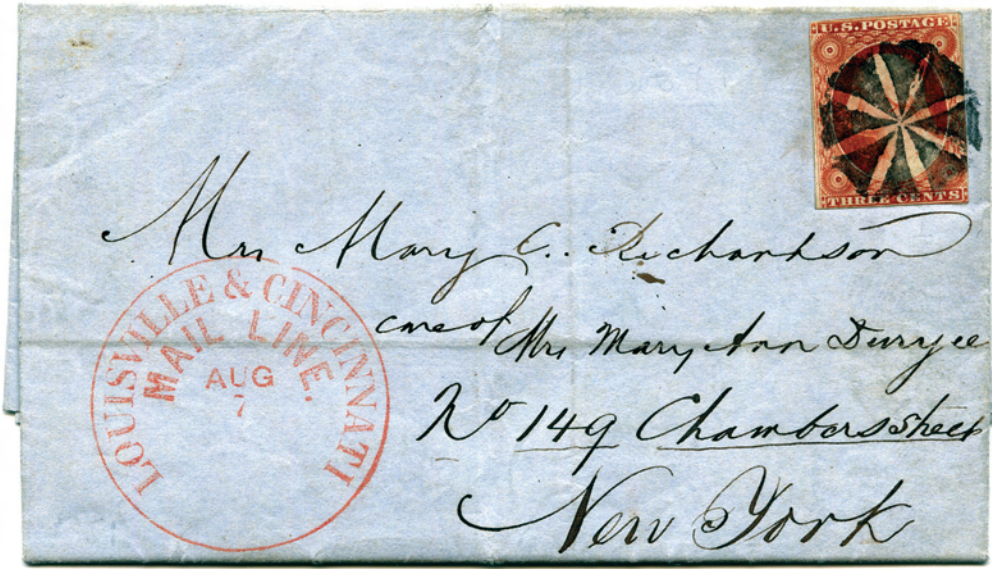 U.S. POSTAGE
THREE CENTS
Mrs Mary C. Richardson
care of Mrs Mary Ann Duryee
No 149 Chambers Street
New York
LOUISVILLE & CINCINNATI
MAIL LINE.
AUG
7